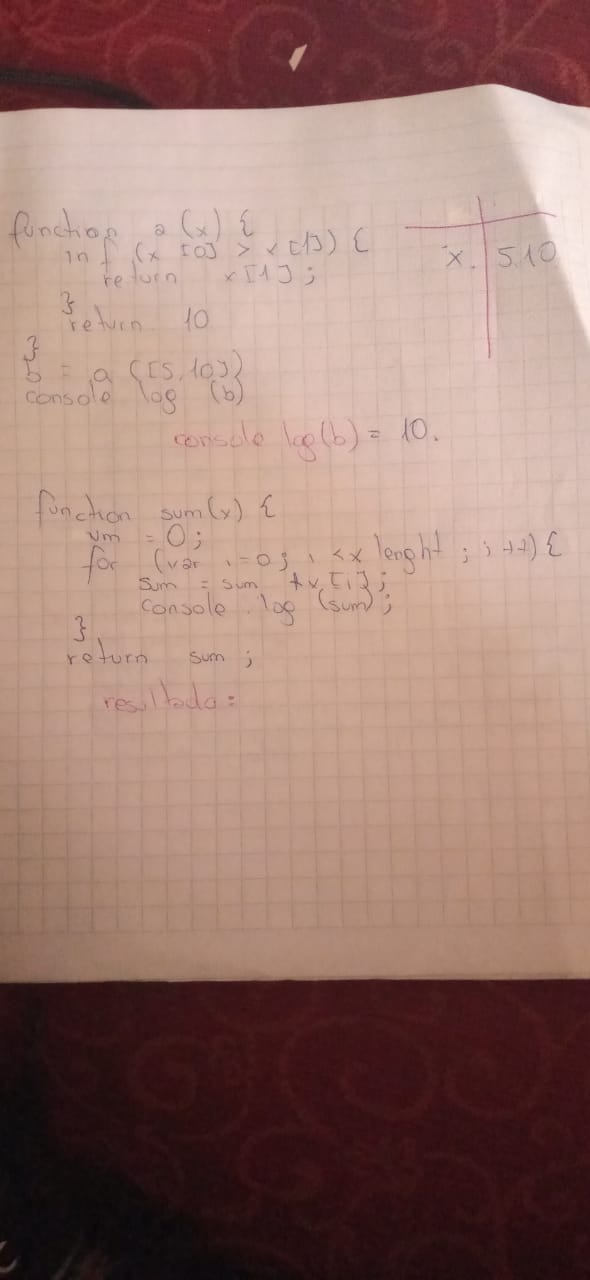 function a (x) {
inf (x [0] > x [1]) {
return x [1] ;
}
return 10
}
b = a ([5, 10])
console log (b)
x. 5.10
console log (b) = 10.
function sum (x) {
um = 0 ;
for (var i = 0 ; i < x lenght ; i ++) {
sum = sum + x [i] ;
console . log (sum) ;
}
return sum ;
resultado :